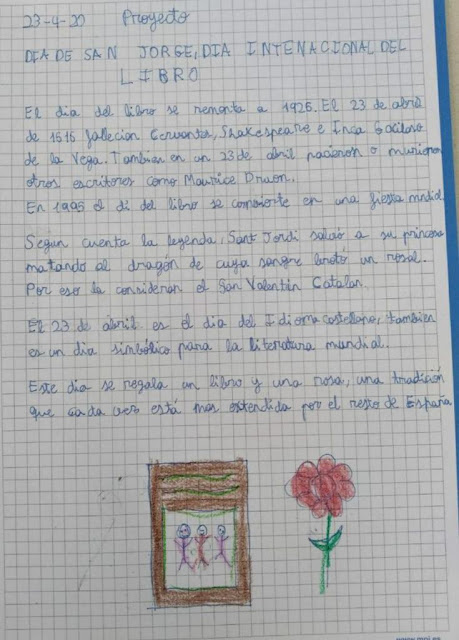 23-4-20 Proyecto
DIA DE SAN JORGE, DIA INTENACIONAL DEL
LIBRO
El dia del libro se remonta a 1926. El 23 de abril
de 1616 fallecion Cervantes, Shakespeare e Inca Gacilaso
de la Vega. Tambien en un 23 de abril nacienon o murieron
otros escritores como Maurice Druon.
En 1995 el di del libro se comvierte en una fiesta mndial
Segun cuenta la leyenda, Sant Jordi salvó a su princesa
matando al dragón de cuya sangre brotó un rosal.
Por eso la consideran el San Valentin Catalan.
El 23 de abril es el dia del Idioma castellano, tambien
es un dia simbólico para la literatura mundial.
Este dia se regala un libro y una rosa, una tradición
que cada vez está mas extendida por el resto de España